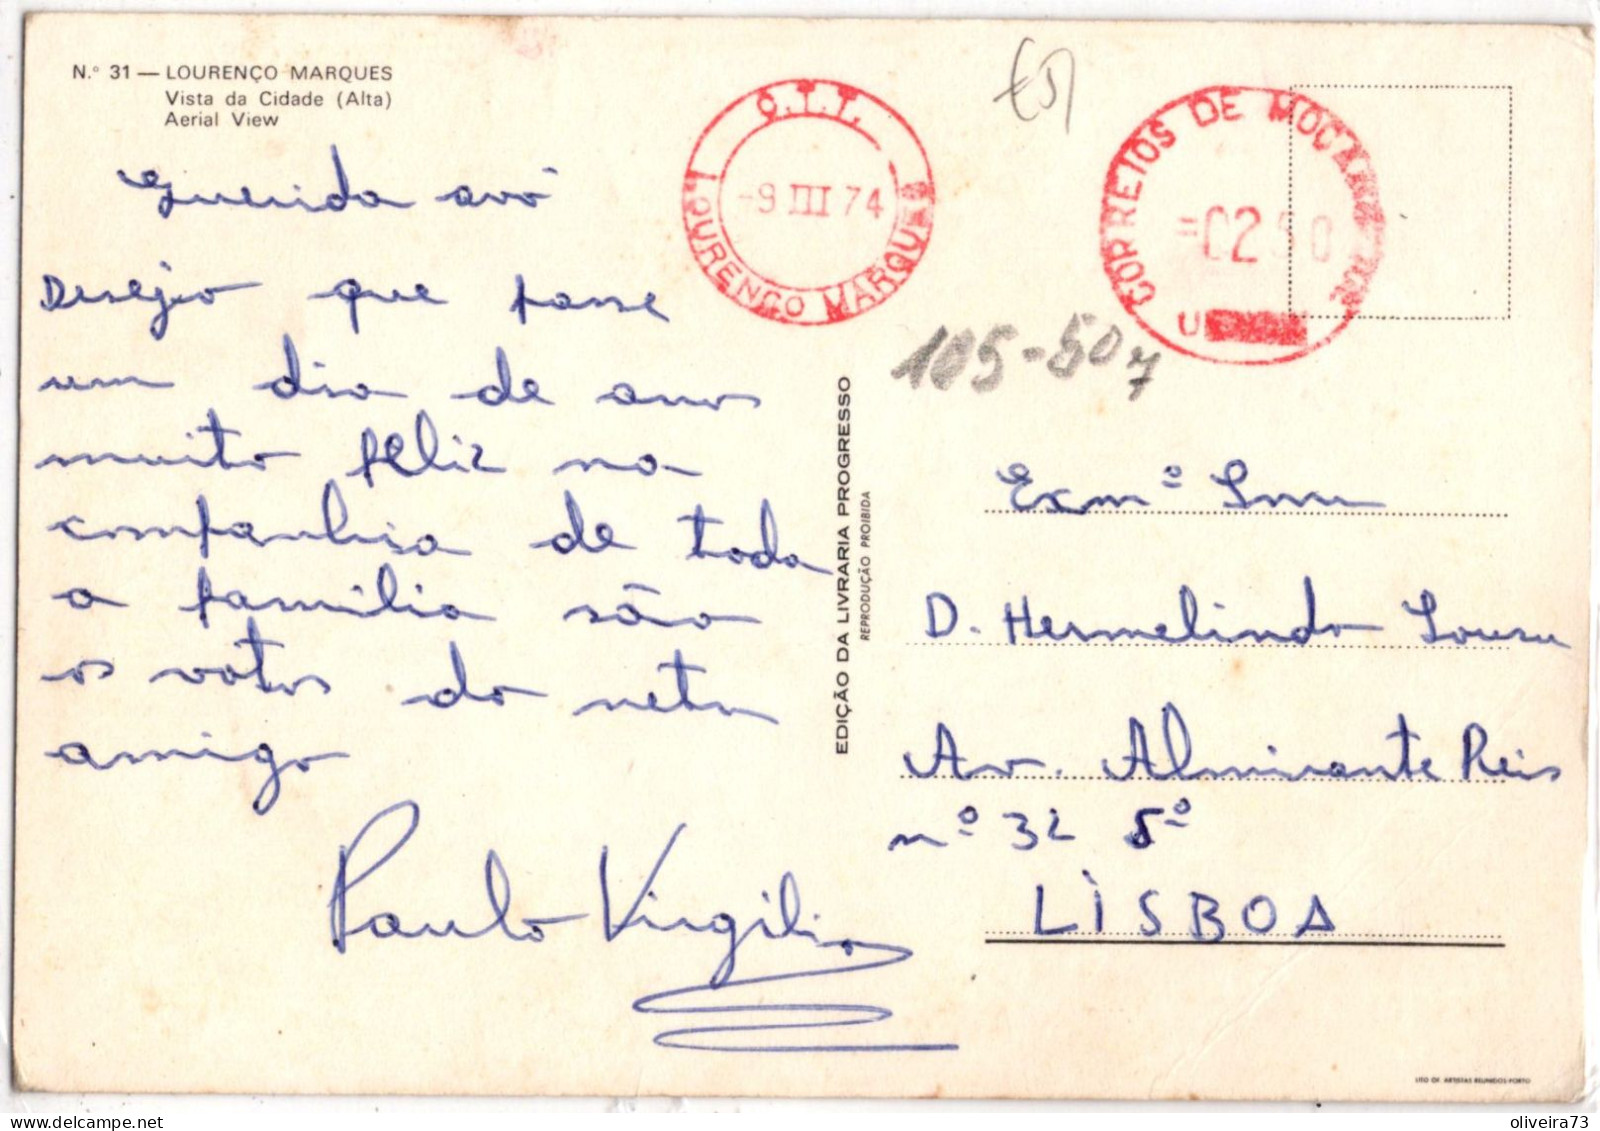 N.º 31 — LOURENÇO MARQUES
Vista da Cidade (Alta)
Aerial View
Querida avó
Desejo que passe
um dia de anos
muito feliz na
companhia de toda
a familia são
os votos do neto
amigo
Paulo Virgilio
C.T.T.
-9 III 74
LOURENÇO MARQUES
CORREIOS DE MOÇAMBIQUE
=02 50
105-50
EDIÇÃO DA LIVRARIA PROGRESSO
REPRODUÇÃO PROIBIDA
Exmª Snra
D. Hermelinda Sousa
Av. Almirante Reis
nº 32 5º
LISBOA
LITO OF. ARTISTAS REUNIDOS-PORTO
oliveira73